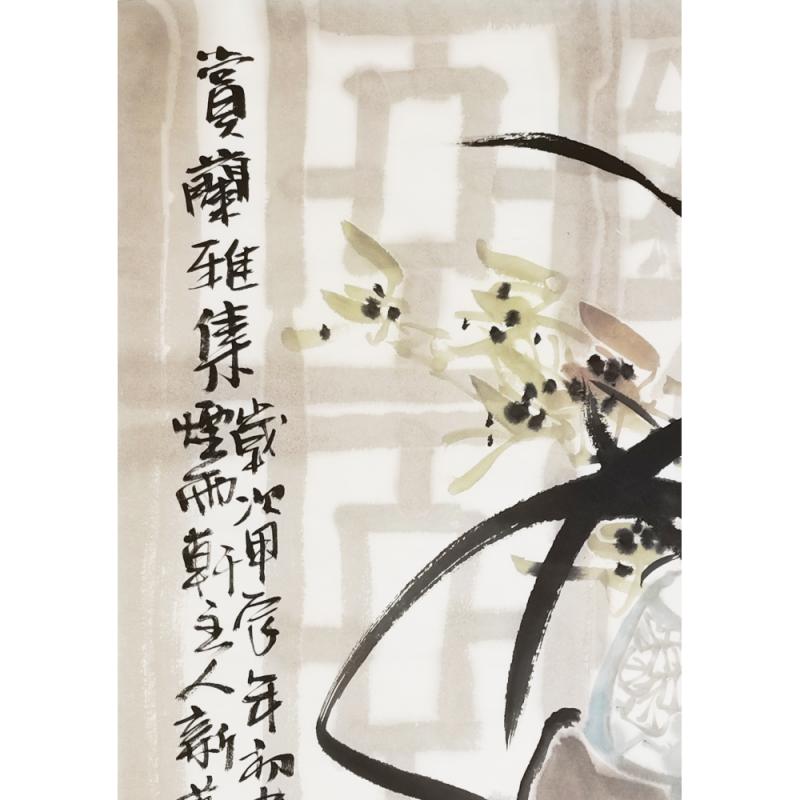 賞蘭雅集
歲次甲辰年初
煙雨軒主人新